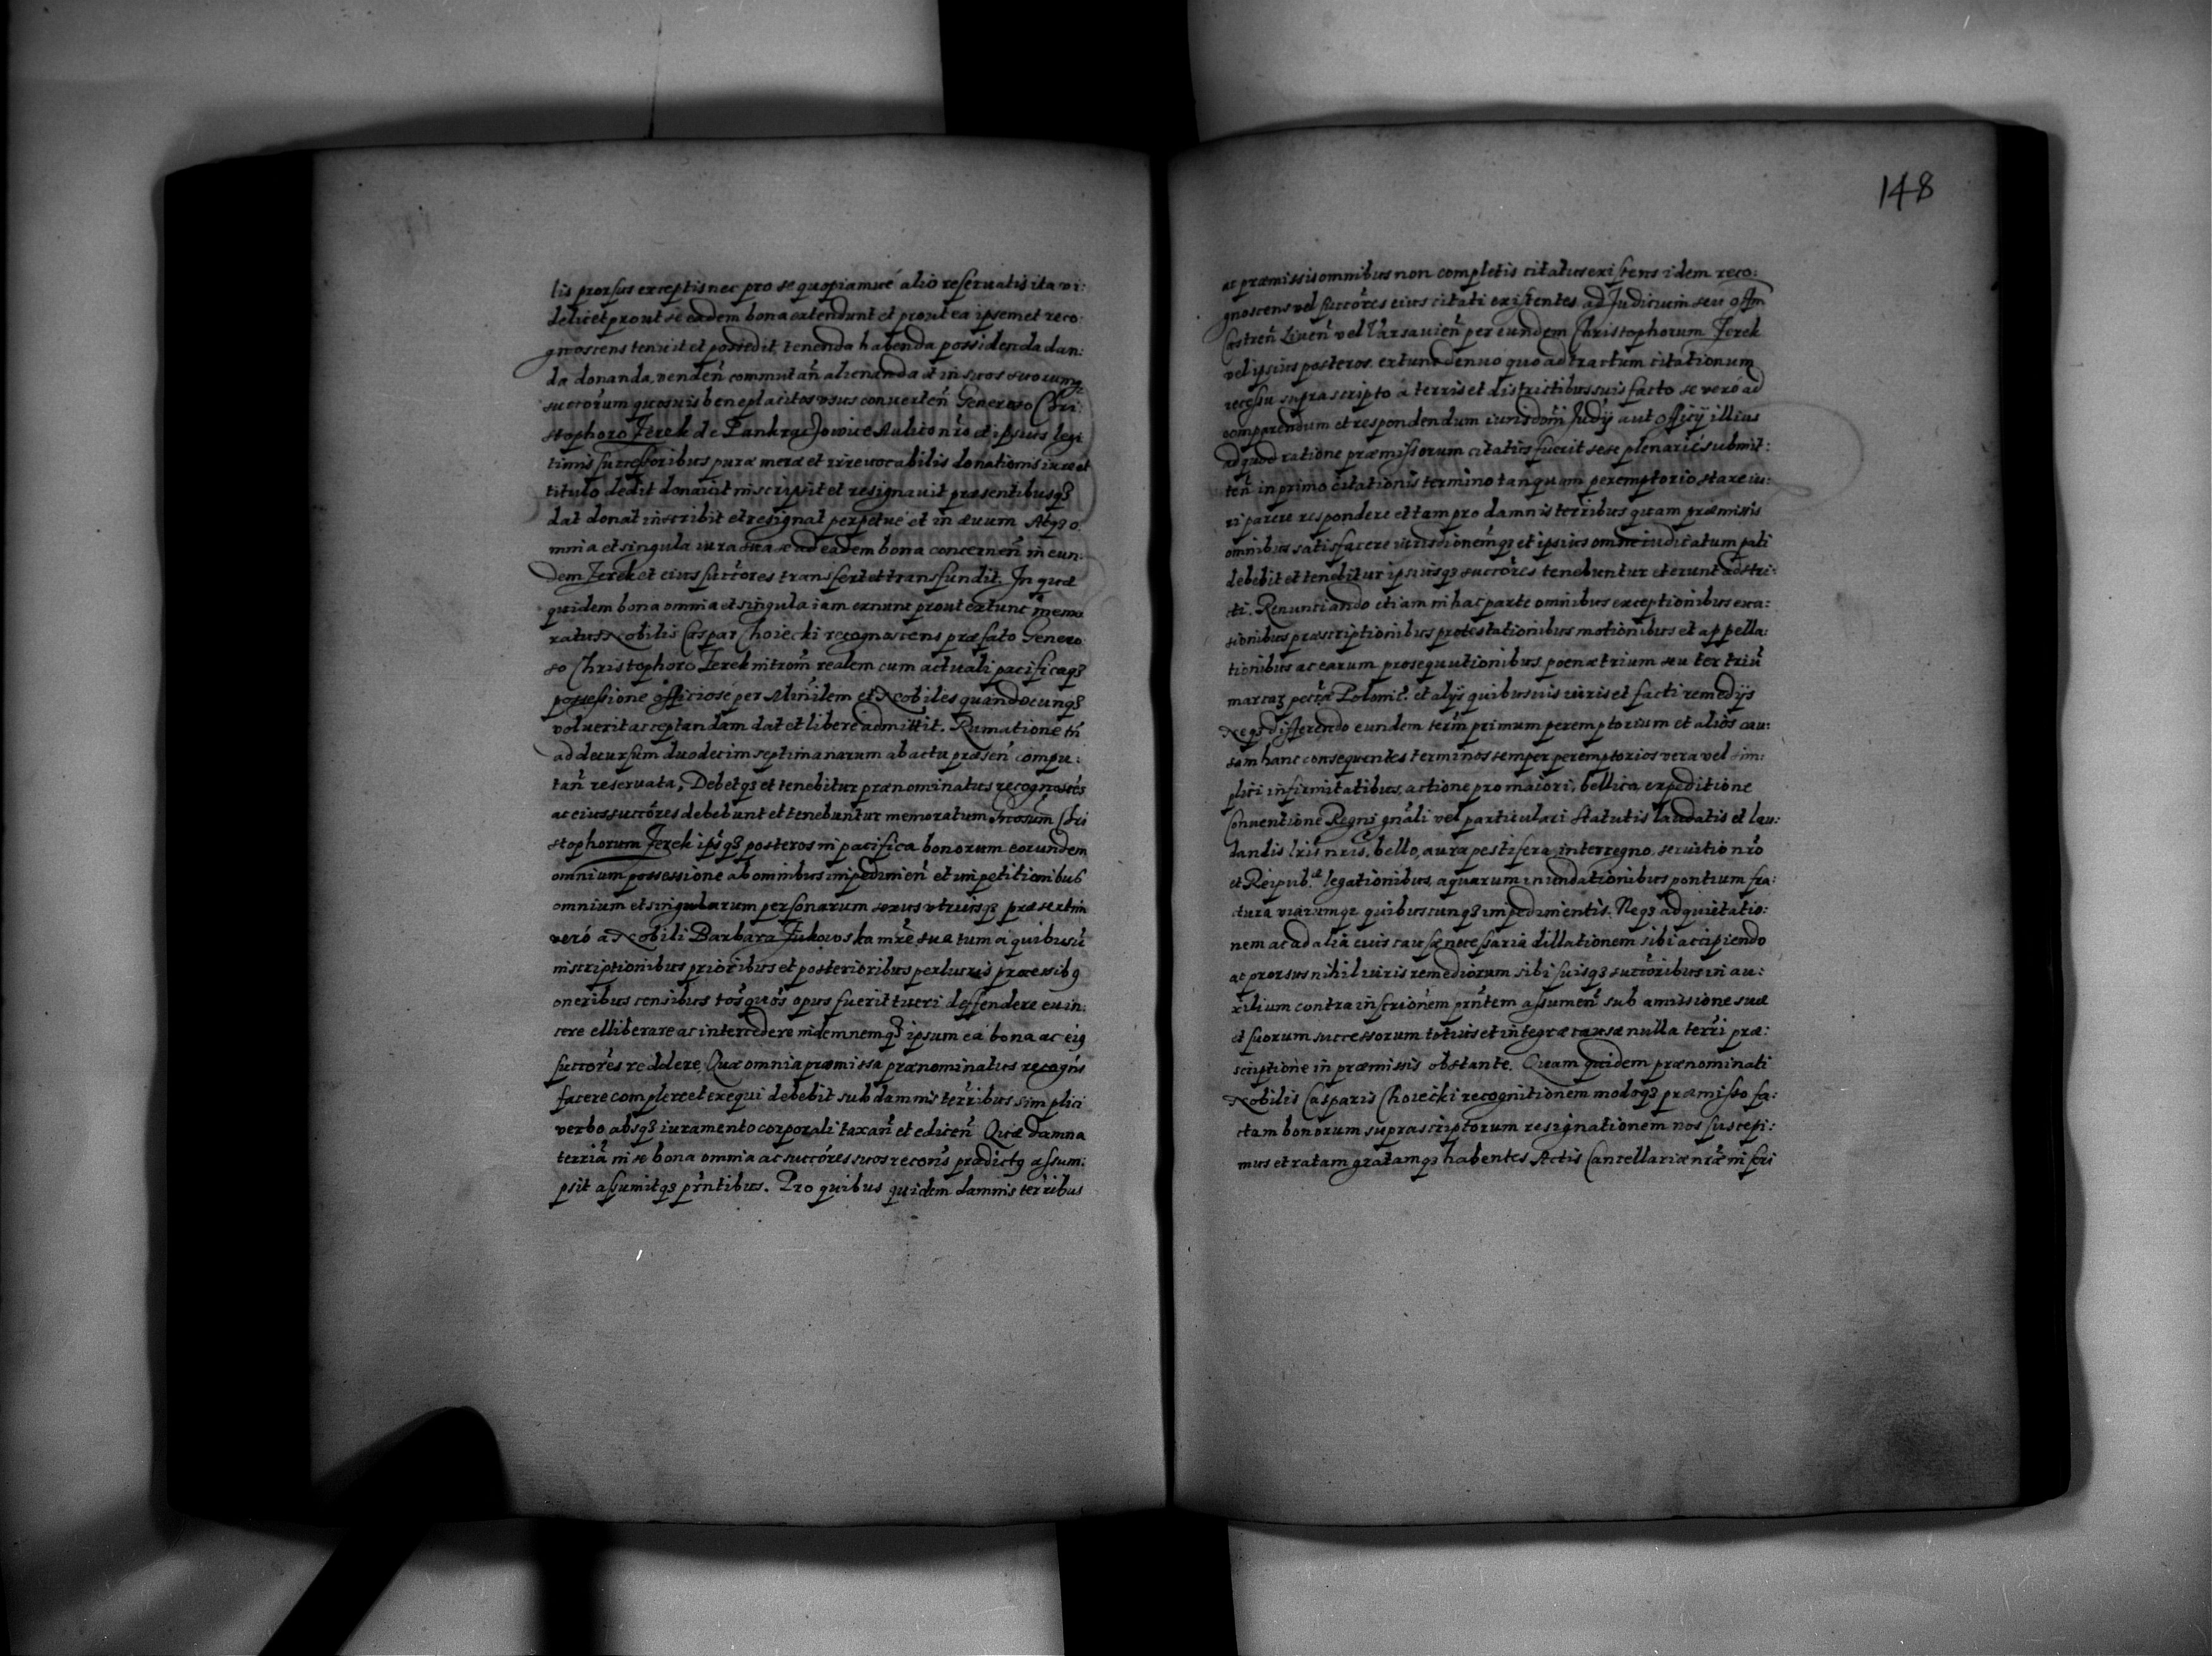 lis prorsus exceptis nec pro se quopiamué alio reseruatis ita vi:
delicet prout se eadem bona extendunt et prout ea ipsemet reco
gnoscens tenuit et possedit, tenenda habenda possidenda dan:
da donanda, venden̄ commutan̄ alienanda et in suos suorumq₃
succorum quosuis beneplacitos vsus conuerten̄ Generoso Chri
stophoro Jerek de Pankracowice Aulico nr̄o et ipsius legi
timis successoribus puræ meræ et irreuocabilis donationis iure et
titulo dedit donauit inscripsit et resignauit præsentibusq₃
dat donat inscribit et resignat perpetué et in æuum Atq₃ o
mnia et singula iura sua ad eadem bona concernen̄ in eun:
dem Jerek et eius succores transfert et transfundit. In quæ
quidem bona omnia et singula iam exnunc prout extunc memo
ratus Nobilis Caspar Choiecki recognoscens præfato Genero
so Christophoro Jerek introm̄ realem cum actuali pacificaq₃
possessione officiosé per Min̄ilem et Nobiles quandocunq₃
voluerit acceptandam dat et libere admittit. Rumatione tn̄
ad decursum duodecim septimanarum ab actu præsen̄ compu:
tan̄ reseruata, Debetq₃ et tenebitur prænominatus recognoscēs
ac eius succores debebunt et tenebuntur memoratum Gn̄osum Chri
stophorum Jerek ips̄iq₃ posteros in pacifica bonorum eorundem
omnium possessione ab omnibus impedimen̄ et impetitionibus
omnium et singularum personarum sexus vtriusq₃ præsertim
veró a Nobili Barbara Zukowska mr̄e sua tum a quibusu̅
inscriptionibus prioribus et posterioribus perlucris processib₉
oneribus censibus tos̄ quos̄ opus fuerit tueri deffendere euin:
cere elliberare ac intercedere indemnemq₃ ipsum ea bona ac ei₉
succores reddere, Quæ omnia præmissa prænominatus recogn̄s
facere complere et exequi debebit sub damnis terr̄ibus simplici
verbo absq₃ iuramento corporali taxan̄ et edicen̄ Quæ damna
terriā in se bona omnia ac succores suos recon̄s prædict₉ assum:
psit assumitq₃ pr̄ntibus. Pro quibus quidem damnis terr̄ibus
148
ac præmissis omnibus non completis citatus existens idem reco:
gnoscens vel succores eius citati existentes ad Judicium seu offm̄
Castren̄ Liuen̄ vel Varsauien̄ per eundem Christophorum Jerek
vel ipsius posteros extunc denuo quo ad tractum citationum
recessu suprascripto á terris et districtibus suis facto se veró ad
comparendum et respondendum iurisdom̄ Judij aut Officij illius
ad quod ratione præmissorum citatus fuerit sese plenarié submit:
ten̄ in primo citationis termino tanquam peremptorio stare iu:
ri parere respondere et tam pro damnis terr̄ibus quam præmissis
omnibus satisfacere iurisdionemq₃ et ipsius omne iudicatum pati
debebit et tenebitur ipsiusq₃ succores tenebuntur et erunt adstri:
cti. Renunciando etiam in hac parte omnibus exceptionibus eua:
sionibus præscriptionibus protestationibus motionibus et appella:
tionibus ac earum prosequutionibus pœnæ trium seu ter triū
marcaȝ pecc̄æ Polonic̄. et alijs quibusuis iuris et facti remedijs
Neq₃ differendo eundem term̄ primum peremptorium et alios cau:
sam hanc consequentes terminos semper peremptorios vera vel sim:
plici infirmitatibus, actione pro maiori, bellica expeditione
Conuentione Regni gn̄ali vel particulari statutis laudatis et lau:
dandis lr̄is nr̄is, bello, aura pestifera, interregno, seruitio nr̄o
et Reipub.ᵃᵉ legationibus, aquarum inundationibus pontium fra:
ctura viarumq₃ quibuscunq₃ impedimentis. Neq₃ ad quietatio:
nem ac ad aliā cuis causæ necessariā dillationem sibi accipiendo
ac prorsus nihil iuris remediorum sibi suisq₃ succoribus in au:
xilium contra inscrionem pr̄ntem assumen̄ sub amissione suæ
et suorum successorum totius et integræ causæ nulla terr̄i præ:
scriptione in præmissis obstante. Quam quidem prænominati
Nobilis Casparis Choiecki recognitionem modoq₃ præmisso fa:
ctam bonorum suprascriptorum resignationem nos suscepi:
mus et ratam gratamq₃ habentes Actis Cancellariæ nr̄æ inseri